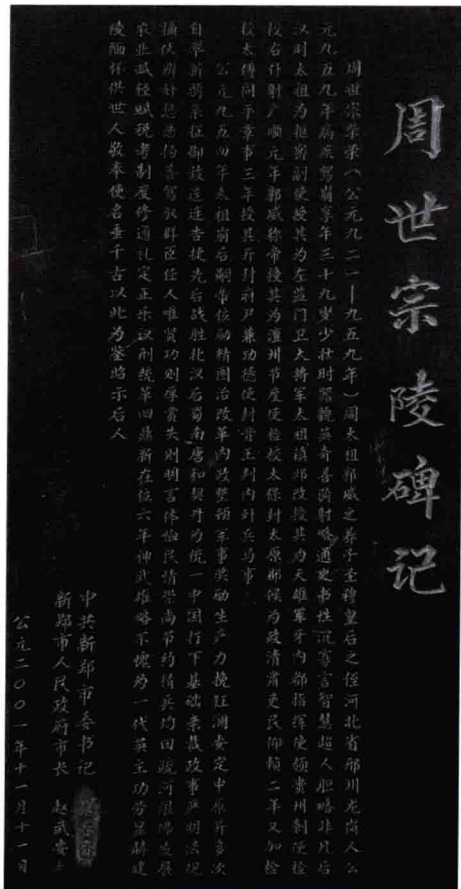 周世宗陵碑记
周世宗柴荣（公元九二一—九五九年）周太祖郭威之养子圣穆皇后之侄河北省邢州龙岗人公
元九五九年病疾驾崩享年三十九岁少壮时器貌英奇善骑射略通史书性沉寡言智慧超人胆略非凡后
汉时太祖为枢密副使授其为左监门卫大将军太祖镇邺改授其为天雄军牙内都指挥使领贵州刺使检
校右仆射广顺元年郭威称帝授其为澶州节度使检校太保封太原郡侯为政清肃吏民仰赖二年又加检
校太傅同平章事三年授其开封府尹兼功德使封晋王判内外兵马事
公元九五四年太祖崩后嗣帝位励精图治改革内政整顿军事奖励生产力挽狂澜安定中原并多次
自率新劲亲征御敌连连告捷先后战胜北汉后蜀南唐和契丹为统一中国打下基础亲栽政事严明法规
摘伏辩奸惩恶扬善驾驭群臣任人唯贤功则厚赏失则明言体恤民情崇尚节约精兵均田疏河限佛发展
农业减轻赋税考制度修通礼定正乐议刑统革旧鼎新在位六年神武雄略不愧为一代英主功劳显赫建
陵缅怀供世人敬奉使名垂千古以此为鉴昭示后人
中共新郑市委书记
新郑市人民政府市长 赵武安立
公元二〇〇一年十一月十一日